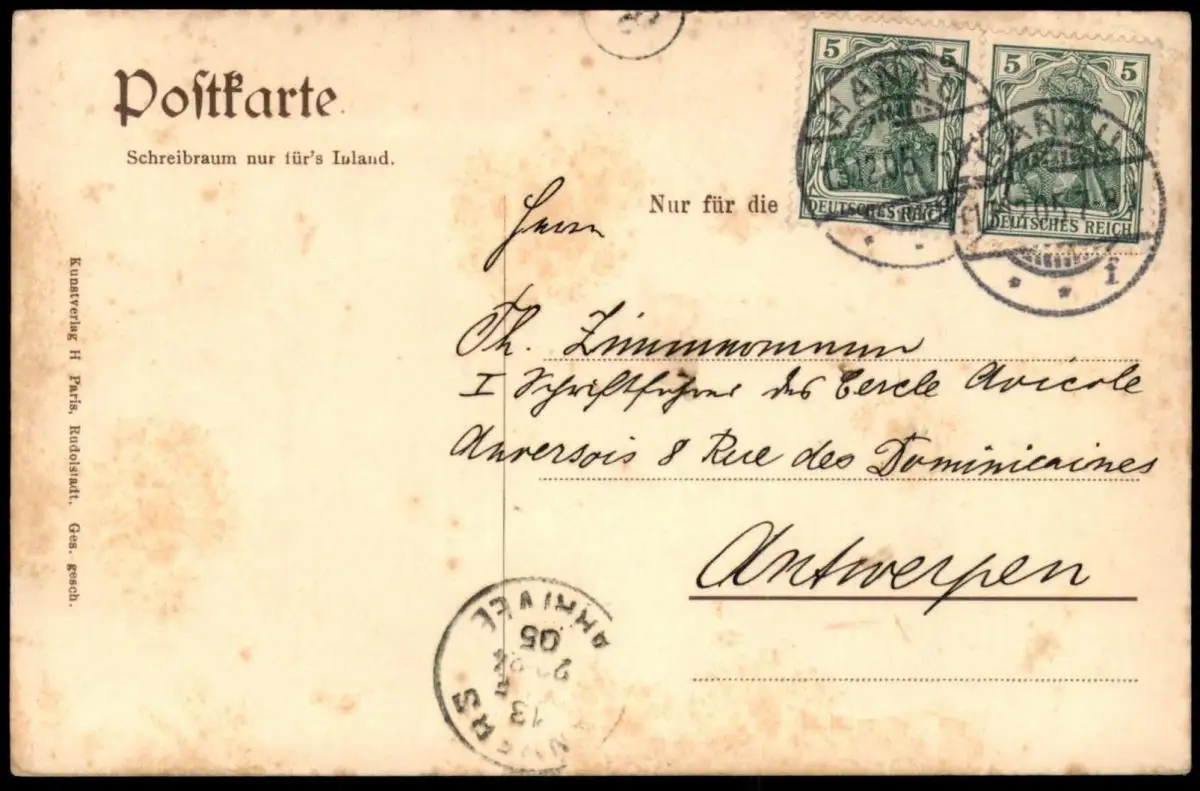 Postkarte.
Schreibraum nur für's Inland.
Nur für die
5 5
DEUTSCHES REICH
5 5
DEUTSCHES REICH
HANAU
12.05
HANAU
12.05
f
Herrn
Th. Zimmermann
I Schriftführer des Cercle Avicole
Anversois 8 Rue des Dominicaines
Antwerpen
Kunstverlag H Paris, Rudolstadt. Ges. gesch.
ANVERS
13
05
ARRIVEE